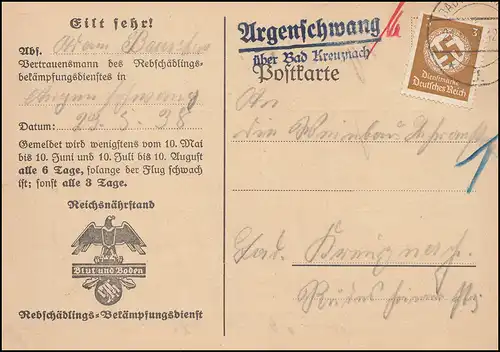 Eilt sehr!
Abs. Adam
Vertrauensmann des Rebschädlings-
bekämpfungsdienstes in
Argenschwang
Datum: 29. 5. 38
Gemeldet wird wenigstens vom 10. Mai
bis 10. Juni und 10. Juli bis 10. August
alle 6 Tage, solange der Flug schwach
ist; sonst alle 3 Tage.
Reichsnährstand
Blut und Boden
Rebschädlings-Bekämpfungsdienst
Argenschwang
über Bad Kreuznach
Postkarte
3
Dienstmarke
Deutsches Reich
An
die Weinbau
Bad Kreuznach